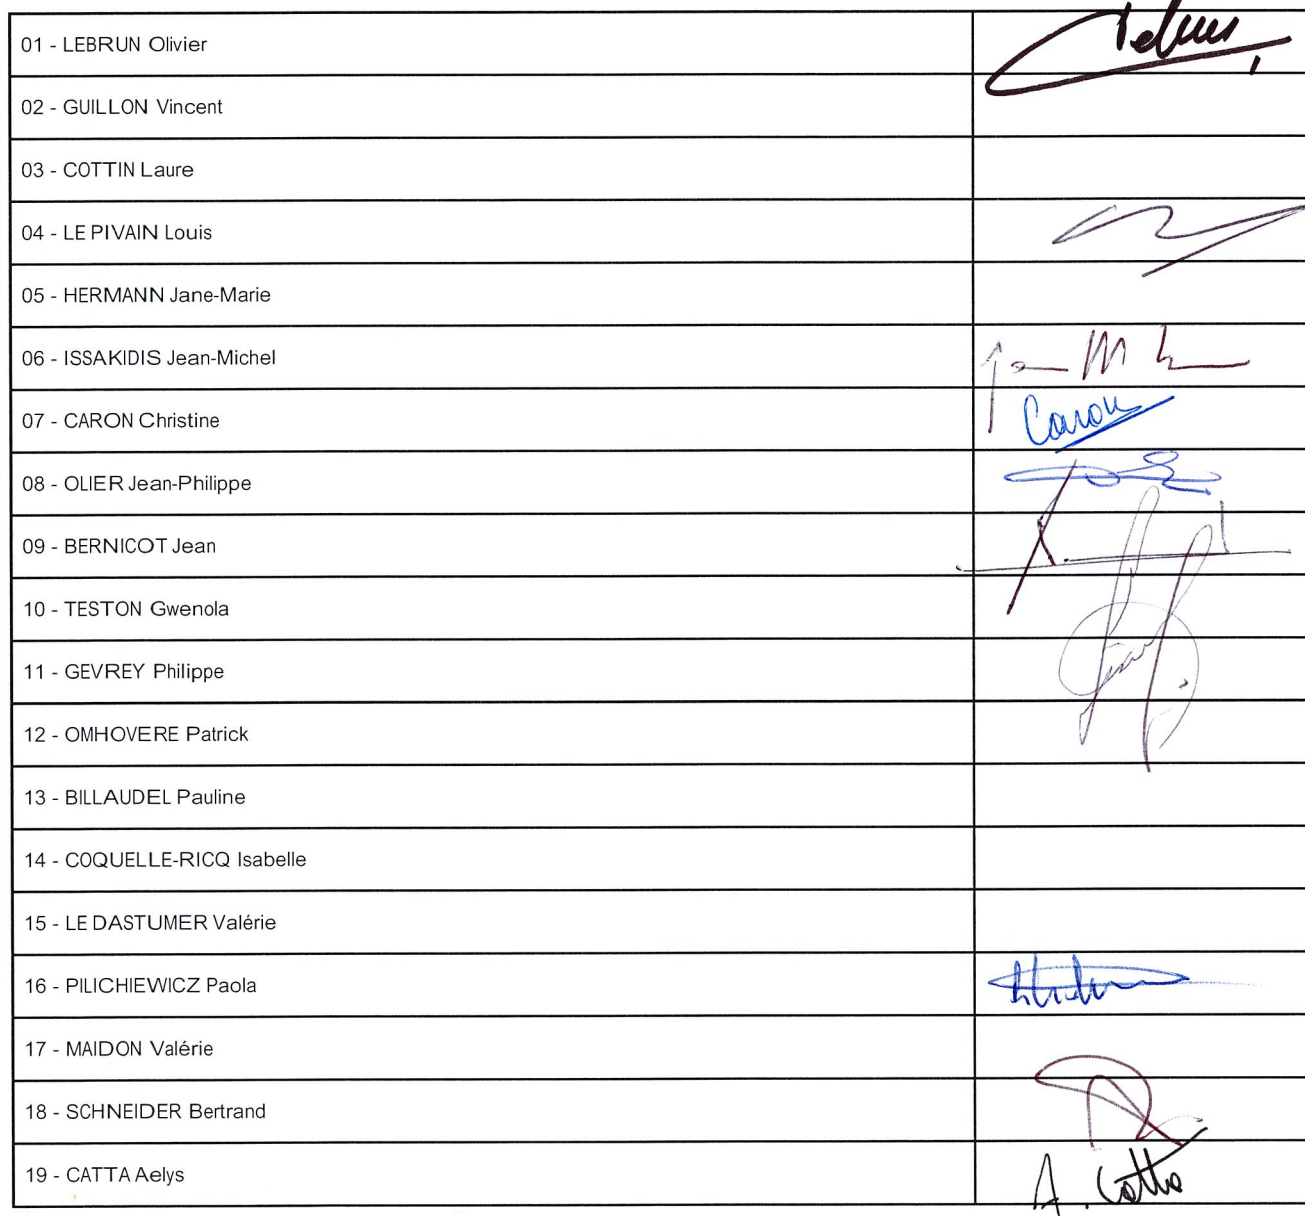 01 - LEBRUN Olivier
02 - GUILLON Vincent
03 - COTTIN Laure
04 - LE PIVAIN Louis
05 - HERMANN Jane-Marie
06 - ISSAKIDIS Jean-Michel
07 - CARON Christine Caron
08 - OLIER Jean-Philippe
09 - BERNICOT Jean
10 - TESTON Gwenola
11 - GEVREY Philippe
12 - OMHOVERE Patrick
13 - BILLAUDEL Pauline
14 - COQUELLE-RICQ Isabelle
15 - LE DASTUMER Valérie
16 - PILICHIEWICZ Paola
17 - MAIDON Valérie
18 - SCHNEIDER Bertrand
19 - CATTA Aelys A. Catta